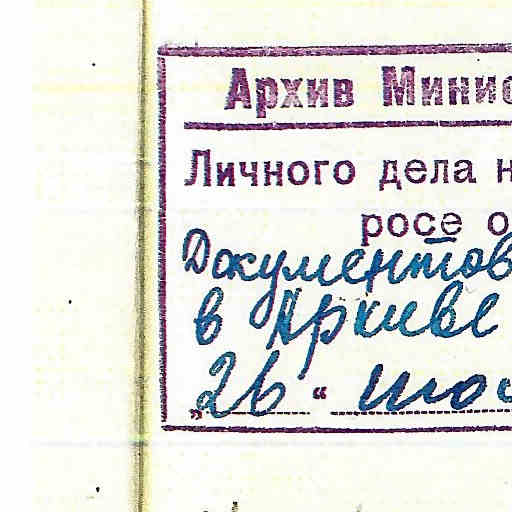 Архив Минис
Личного дела н
росе о
Документов
в Архиве
„26“ июл